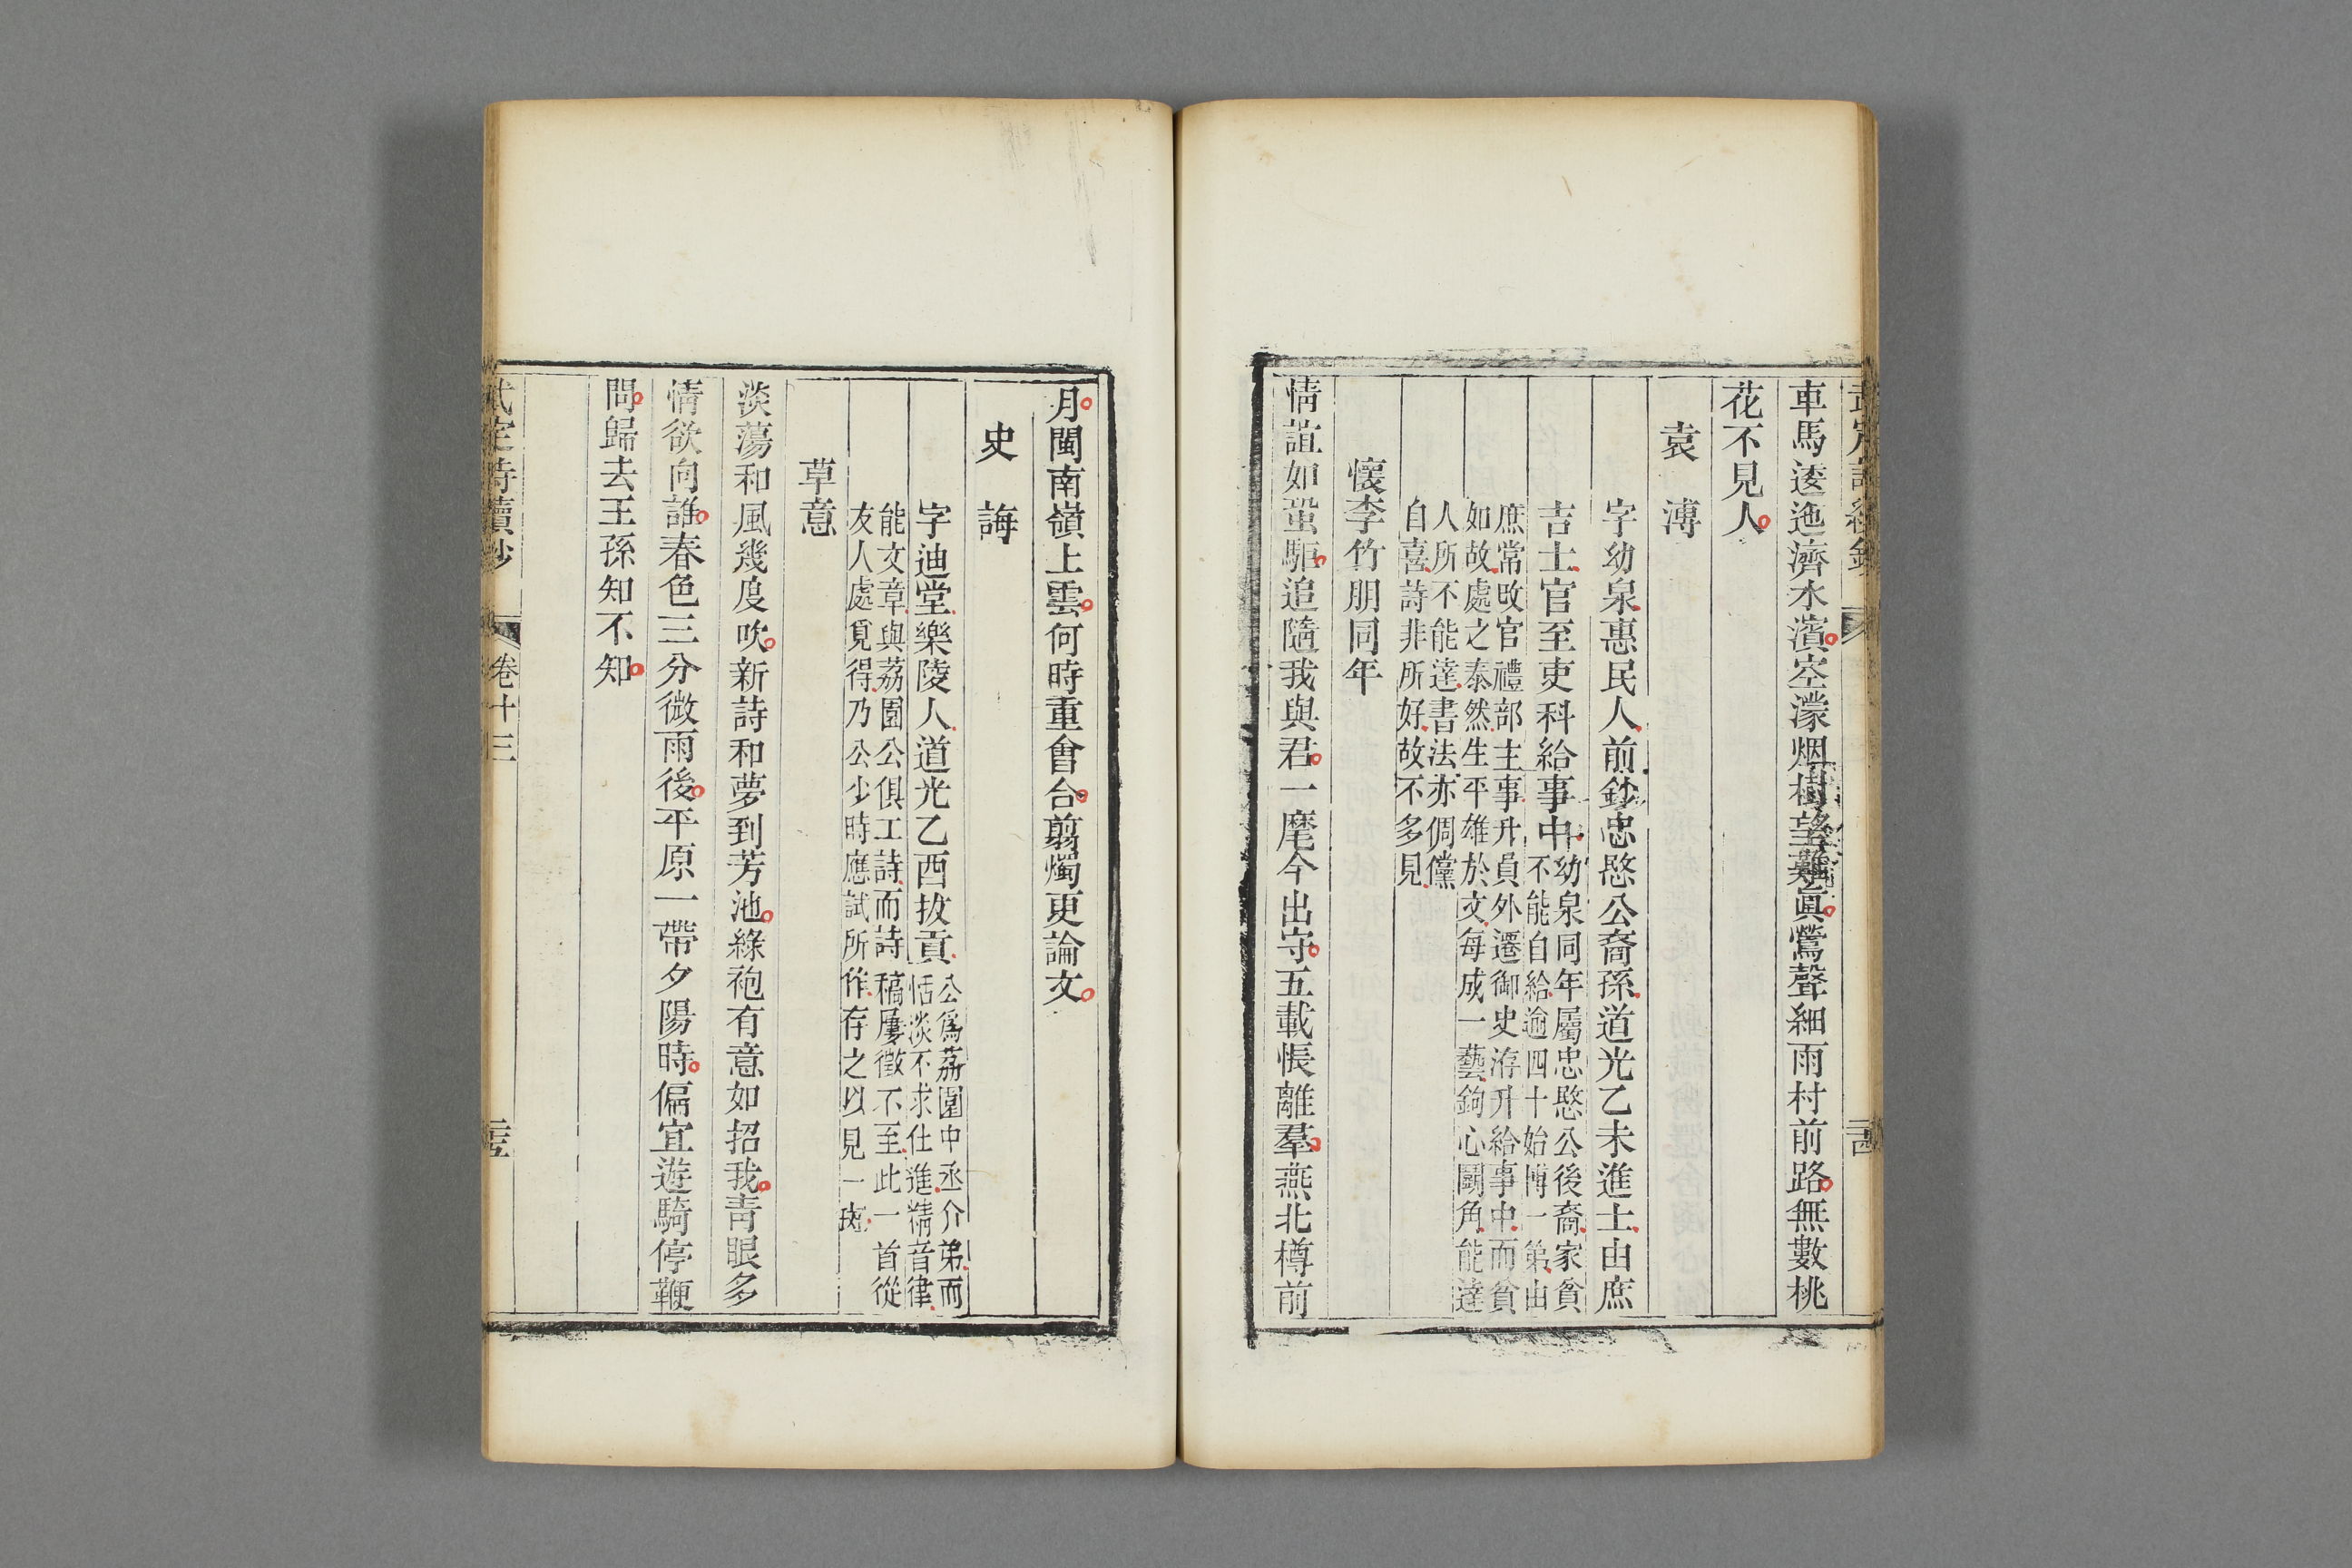 車馬逶迤濟水濱空濛烟樹望難眞鶯聲細雨村前路無數桃
花不見人
袁溥
字幼泉惠民人前鈔忠愍公裔孫道光乙未進士由庶
吉士官至吏科給事中
幼泉同年屬忠愍公後裔家貧
不能自給逾四十始博一第由
庶常改官禮部主事升員外遷御史洊升給事中而貧
如故處之泰然生平雄於文每成一藝鉤心鬭角能達
人所不能達書法亦倜儻
自喜詩非所好故不多見
懷李竹朋同年
情誼如蛩駏追隨我與君一麾今出守五載悵離羣燕北樽前
月閩南嶺上雲何時重會合翦燭更論文
史誨
字迪堂樂陵人道光乙酉拔貢
公爲荔園中丞介弟而
恬淡不求仕進精音律
能文章與荔園公俱工詩而詩稿屢徵不至此一首從
友人處覓得乃公少時應試所作存之以見一斑
草意
淡蕩和風幾度吹新詩和夢到芳池綠袍有意如招我靑眼多
情欲向誰春色三分微雨後平原一帶夕陽時偏宜遊騎停鞭
問歸去王孫知不知
武定詩續鈔
卷十三